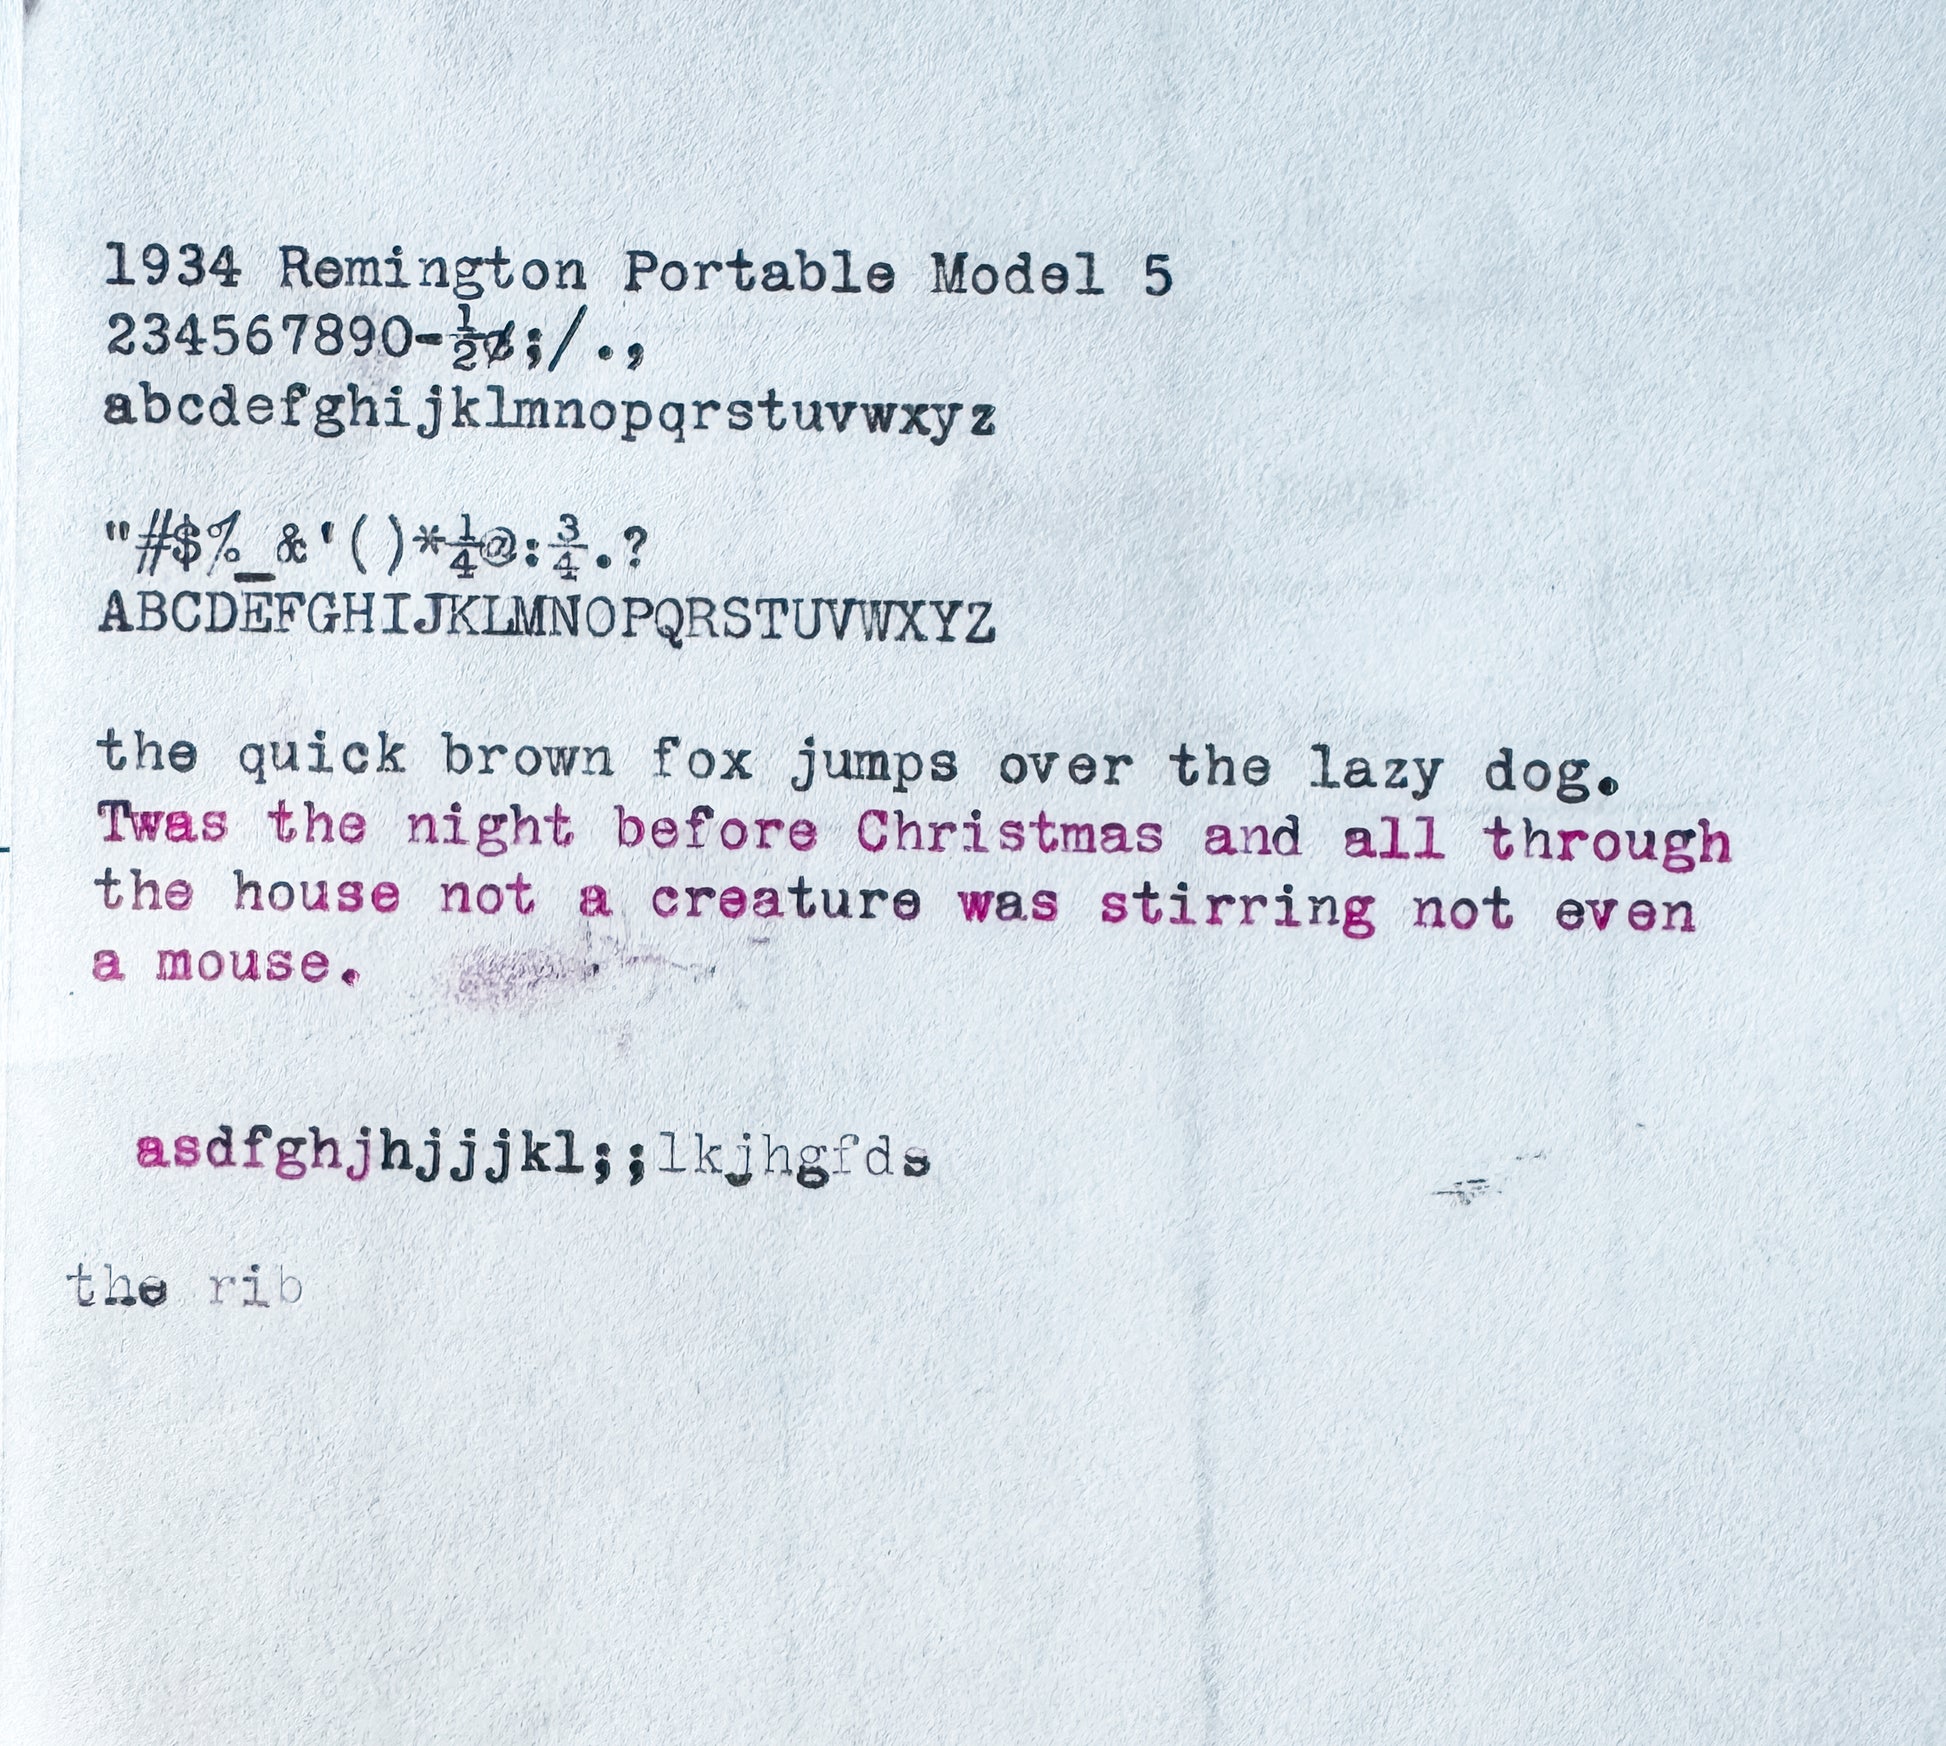 1934 Remington Portable Model 5
234567890-½¢;/.,
abcdefghijklmnopqrstuvwxyz
"#$%_&'()*¼@:¾.?
ABCDEFGHIJKLMNOPQRSTUVWXYZ
the quick brown fox jumps over the lazy dog.
Twas the night before Christmas and all through
the house not a creature was stirring not even
a mouse.
asdfghjhjjjkl;;lkjhgfds
the rib